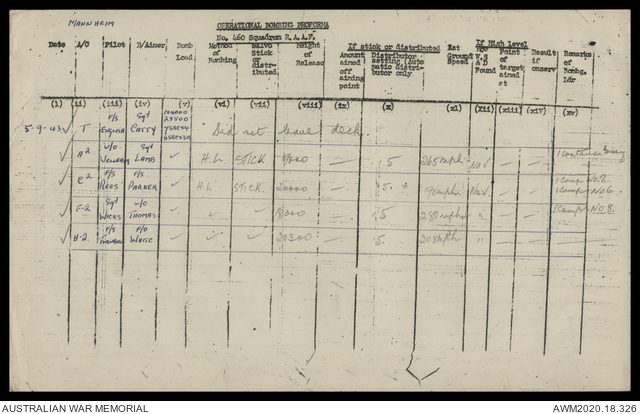 MANNHEIM
OPERATIONAL BOMBING PROFORMA
No. 460 Squadron R.A.A.F.
Date A/C Pilot B/Aimer Bomb Load Method of Bombing Salvo Stick or distributed. Height of Release If stick or distributed Amount aimed off aiming point Distributor setting (Auto matic distributor only Est Ground Speed If High level T&D Found Point of target aimed at Result if conserv Remarks of Bombg. Ldr
(i) (ii) (iii) (iv) (v) (vi) (vii) (viii) (ix) (x) (xi) (xii) (xiii) (xiv) (xv)
5-9-43 ✓ T F/S ENGLISH Sgt CATTY Did not leave deck.
✓ A2 W/O Sgt LAMB ✓ H.L STICK — 5 265mph Nov — — 1
✓ C2 F/S REES F/S PARKER ✓ H.L STICK. 20000 — 5 " 190mph Nov — — 1 Camp No.7. 1 Camp No 6.
✓ F-2 Sgt WICKS W/O THOMAS ✓ ✓ ✓ — 5 " — — 1 Camp No 8.
✓ H-2. F/S F/O WHITE ✓ ✓ ✓ 20300 — 5. 208MPH " — —
AUSTRALIAN WAR MEMORIAL
AWM2020.18.326